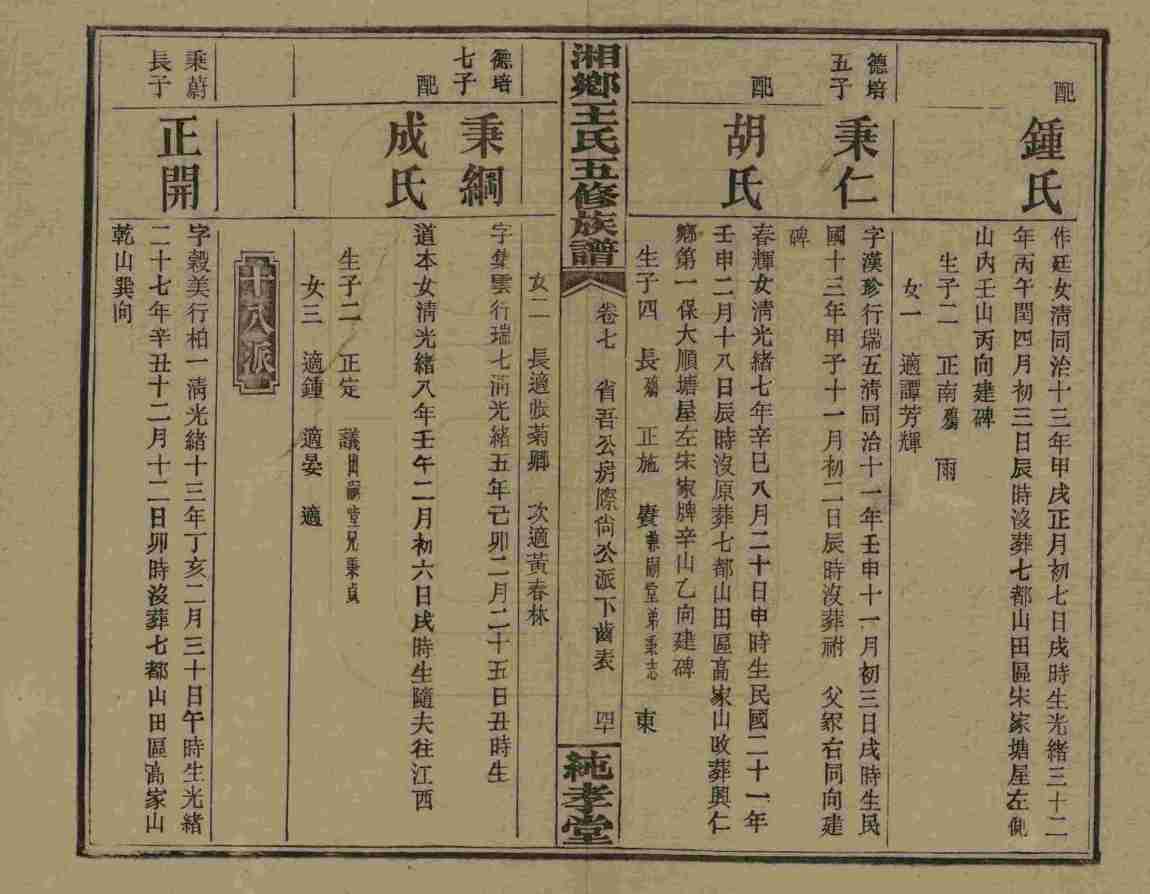 配
鍾氏
作廷女淸同治十三年甲戌正月初七日戌時生光緒三十二
年丙午閏四月初三日辰時沒葬七都山田區宋家塘屋左側
山內壬山丙向建碑
生子二 正南殤 雨
女一 適譚芳輝
德培
五子
秉仁
字漢珍行瑞五淸同治十一年壬申十一月初三日戌時生民
國十三年甲子十一月初二日辰時沒葬祔 父冢右同向建
碑
配
胡氏
春輝女淸光緒七年辛巳八月二十日申時生民國二十一年
壬申二月十八日辰時沒原葬七都山田區高家山改葬興仁
鄉第一保大順塘屋左宋家牌辛山乙向建碑
生子四 長殤 正施 賚兼嗣堂弟秉志 東
湘鄉王氏五修族譜
卷七 省吾公房際尙公派下齒表 四
純孝堂
女二 長適張菊卿 次適黃春林
德培
七子
秉綱
字集雲行瑞七淸光緒五年己卯二月二十五日丑時生
配
成氏
道本女淸光緒八年壬午二月初六日戌時生隨夫往江西
生子二 正定 議出嗣堂兄秉貞
女三 適鍾 適晏 適
十八派
秉蔚
長子
正開
字穀美行柏一淸光緒十三年丁亥二月三十日午時生光緒
二十七年辛丑十二月十二日卯時沒葬七都山田區高家山
乾山巽向